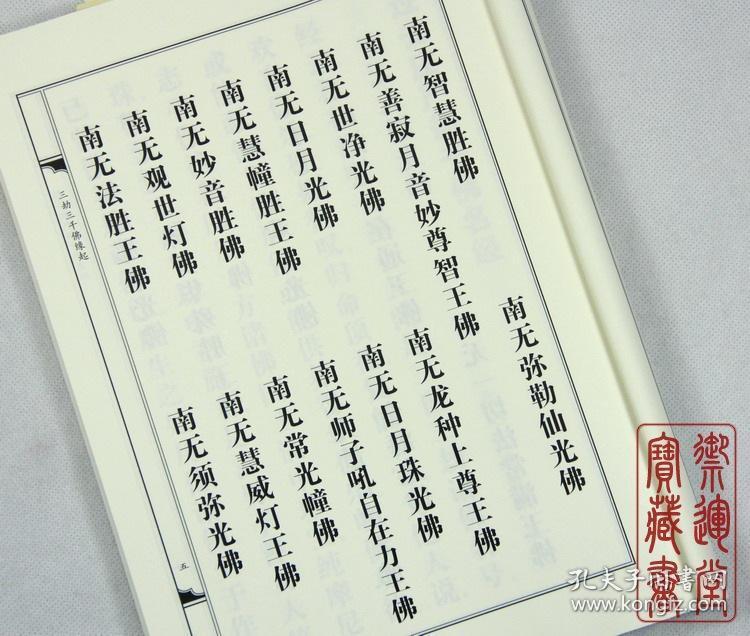 南无智慧胜佛
南无弥勒仙光佛
南无善寂月音妙尊智王佛
南无世净光佛
南无龙种上尊王佛
南无日月光佛
南无日月珠光佛
南无慧幢胜王佛
南无师子吼自在力王佛
南无妙音胜佛
南无常光幢佛
南无观世灯佛
南无慧威灯王佛
南无法胜王佛
南无须弥光佛
三劫三千佛缘起
五
禦運堂
寶藏書
孔夫子旧书网
www.kongfz.com